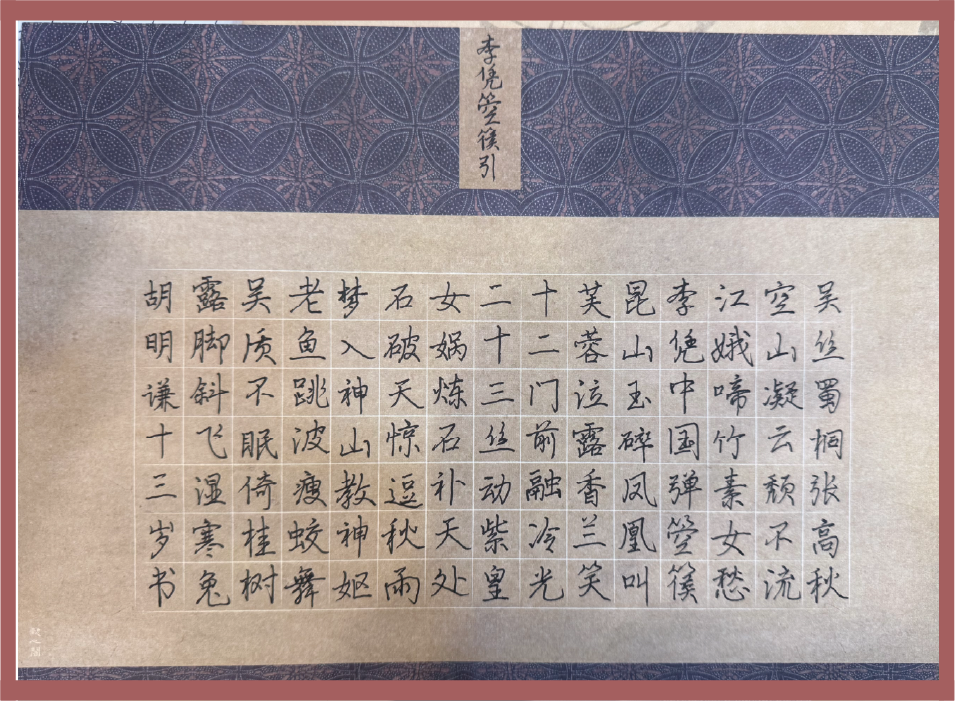 李凭箜篌引
吴丝蜀桐张高秋
空山凝云颓不流
江娥啼竹素女愁
李凭中国弹箜篌
昆山玉碎凤凰叫
芙蓉泣露香兰笑
十二门前融冷光
二十三丝动紫皇
女娲炼石补天处
石破天惊逗秋雨
梦入神山教神妪
老鱼跳波瘦蛟舞
吴质不眠倚桂树
露脚斜飞湿寒兔
胡明谦十三岁书